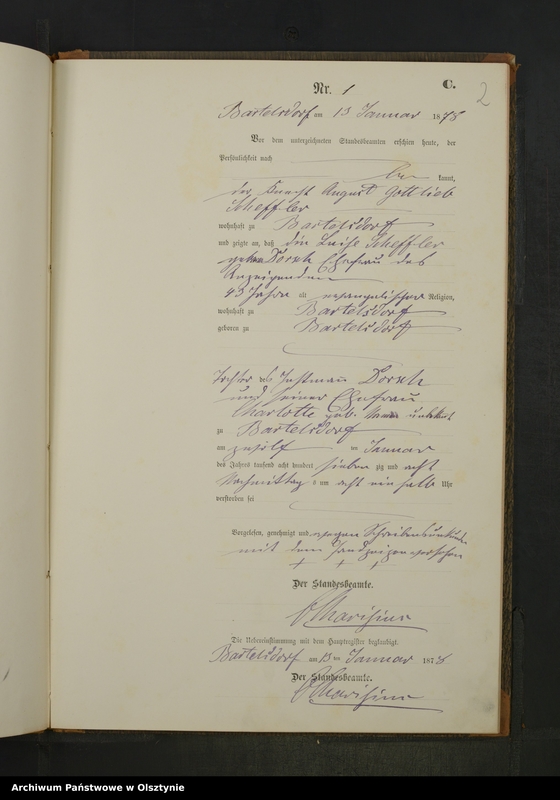 C.
2
Nr. 1
Bartelsdorf am 13 Januar 1878
Vor dem unterzeichneten Standesbeamten erschien heute, der
Persönlichkeit nach
be kannt,
der Knecht August Gottlieb
Scheffler
wohnhaft zu Bartelsdorf
und zeigte an, daß die Luise Scheffler
geborne Dorsch Ehefrau des
Anzeigenden
43 Jahre alt evangelischer Religion,
wohnhaft zu Bartelsdorf
geboren zu Bartelsdorf
Tochter des Instmann Dorsch
und seiner Ehefrau
Charlotte geb. unbekannt
zu Bartelsdorf
am zwölf ten Januar
des Jahres tausend acht hundert sieben zig und acht
Nachmittag s um acht ein halb Uhr
verstorben sei
Vorgelesen, genehmigt und wegen Schreibensunkunde
mit dem Handzeichen versehen
+ + +
Der Standesbeamte.
Die Uebereinstimmung mit dem Hauptregister beglaubigt.
Bartelsdorf am 13 ten Januar 1878
Der Standesbeamte.
Archiwum Państwowe w Olsztynie